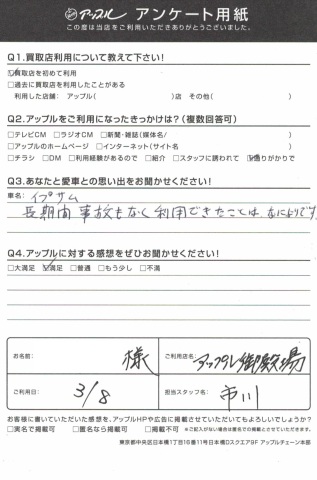 アップル アンケート用紙
この度は当店をご利用いただきありがとうございました。
Q1.買取店利用について教えて下さい!
☑買取店を初めて利用
□過去に買取店を利用したことがある
利用した店舗: アップル( )店 その他( )
Q2.アップルをご利用になったきっかけは?(複数回答可)
□テレビCM □ラジオCM □新聞・雑誌(媒体名/ )
□アップルのホームページ □インターネット(サイト名 )
□チラシ □DM □利用経験があるので □紹介 □スタッフに誘われて ☑通りがかりで
Q3.あなたと愛車との思い出をお聞かせください!
車名: イプサム
長期間 事故もなく利用できたことは、なによりです
Q4.アップルに対する感想をぜひお聞かせください!
□大満足 ☑満足 □普通 □もう少し □不満
お名前: 様 ご利用店名: アップル御殿場
ご利用日: 3/8 担当スタッフ名: 市川
お客様に書いていただいた感想を、アップルHPや広告に掲載させていただいてもよろしいでしょうか?
□実名で掲載可 □匿名なら掲載可 □掲載不可 ※ご記入がない場合は匿名での掲載とさせていただきます。
東京都中央区日本橋1丁目16番11号日本橋Dスクエア9F アップルチェーン本部